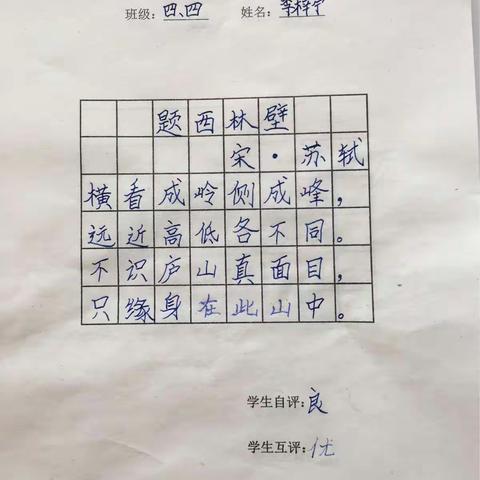 班级：四、四 姓名：李梓宁
题西林壁
宋·苏轼
横看成岭侧成峰，
远近高低各不同。
不识庐山真面目，
只缘身在此山中。
学生自评：良
学生互评：优